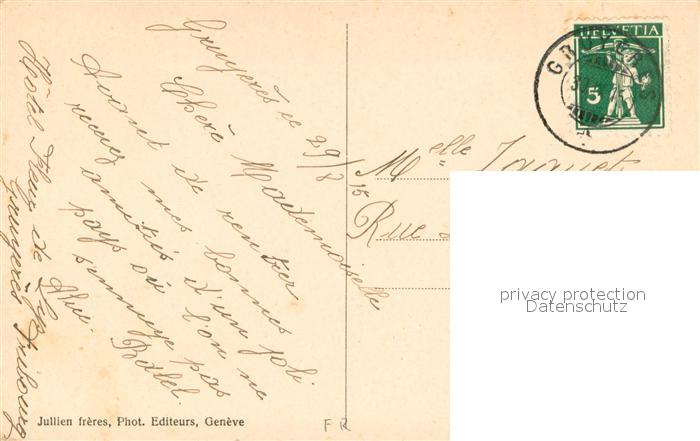 Gruyères le 29/8 15
Chère Mademoiselle
Avant de rentrer
recevez mes bonnes
amitiés d'un joli
pays où l'on ne
s'ennuye pas
Hôtel Fleur de Lys
Gruyères Fribourg
HELVETIA
5
GRUYERES
Melle Jaquet
Rue
privacy protection
Datenschutz
Jullien frères, Phot. Editeurs, Genève
FR